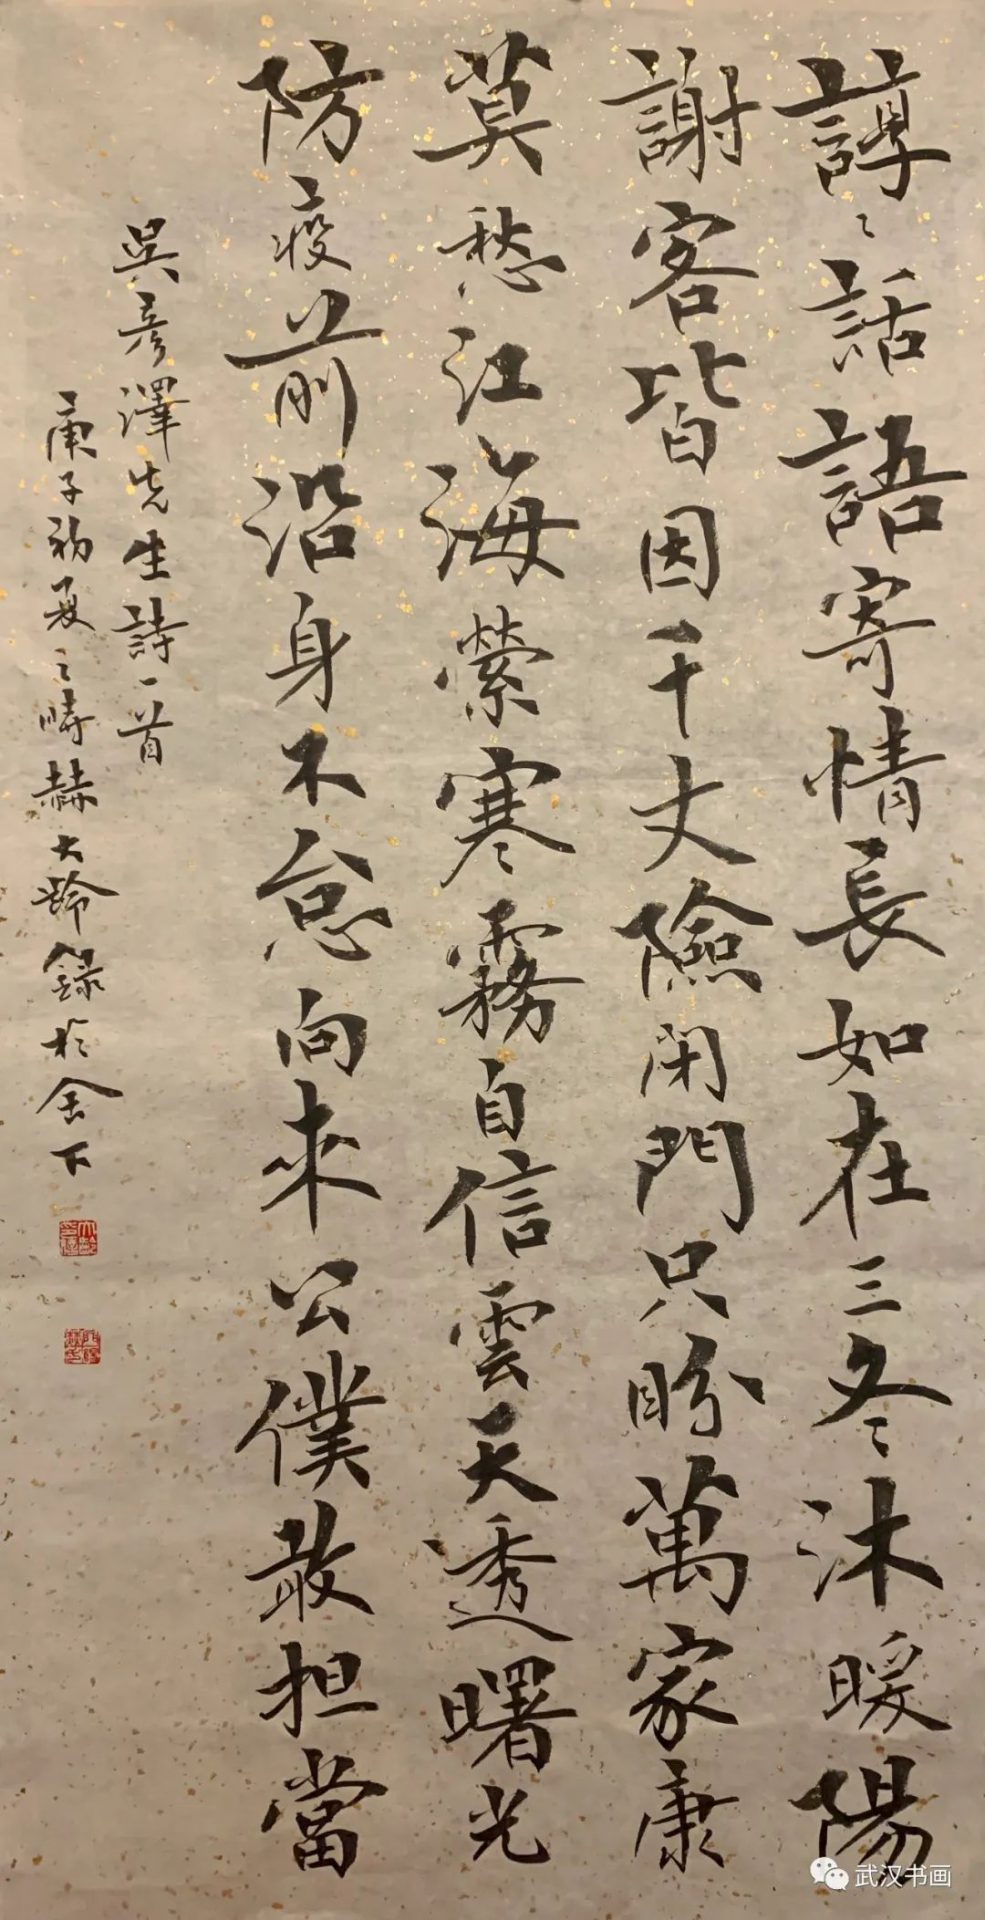 諄〻話語寄情長如在三冬沐暖陽
謝客皆因千丈險閉門只盼萬家康
莫愁江海縈寒霧自信雲天透曙光
防疫前沿身不怠向來公僕敢担當
吳彦澤先生詩一首
庚子初夏之時赫大齡録於舍下
武汉书画